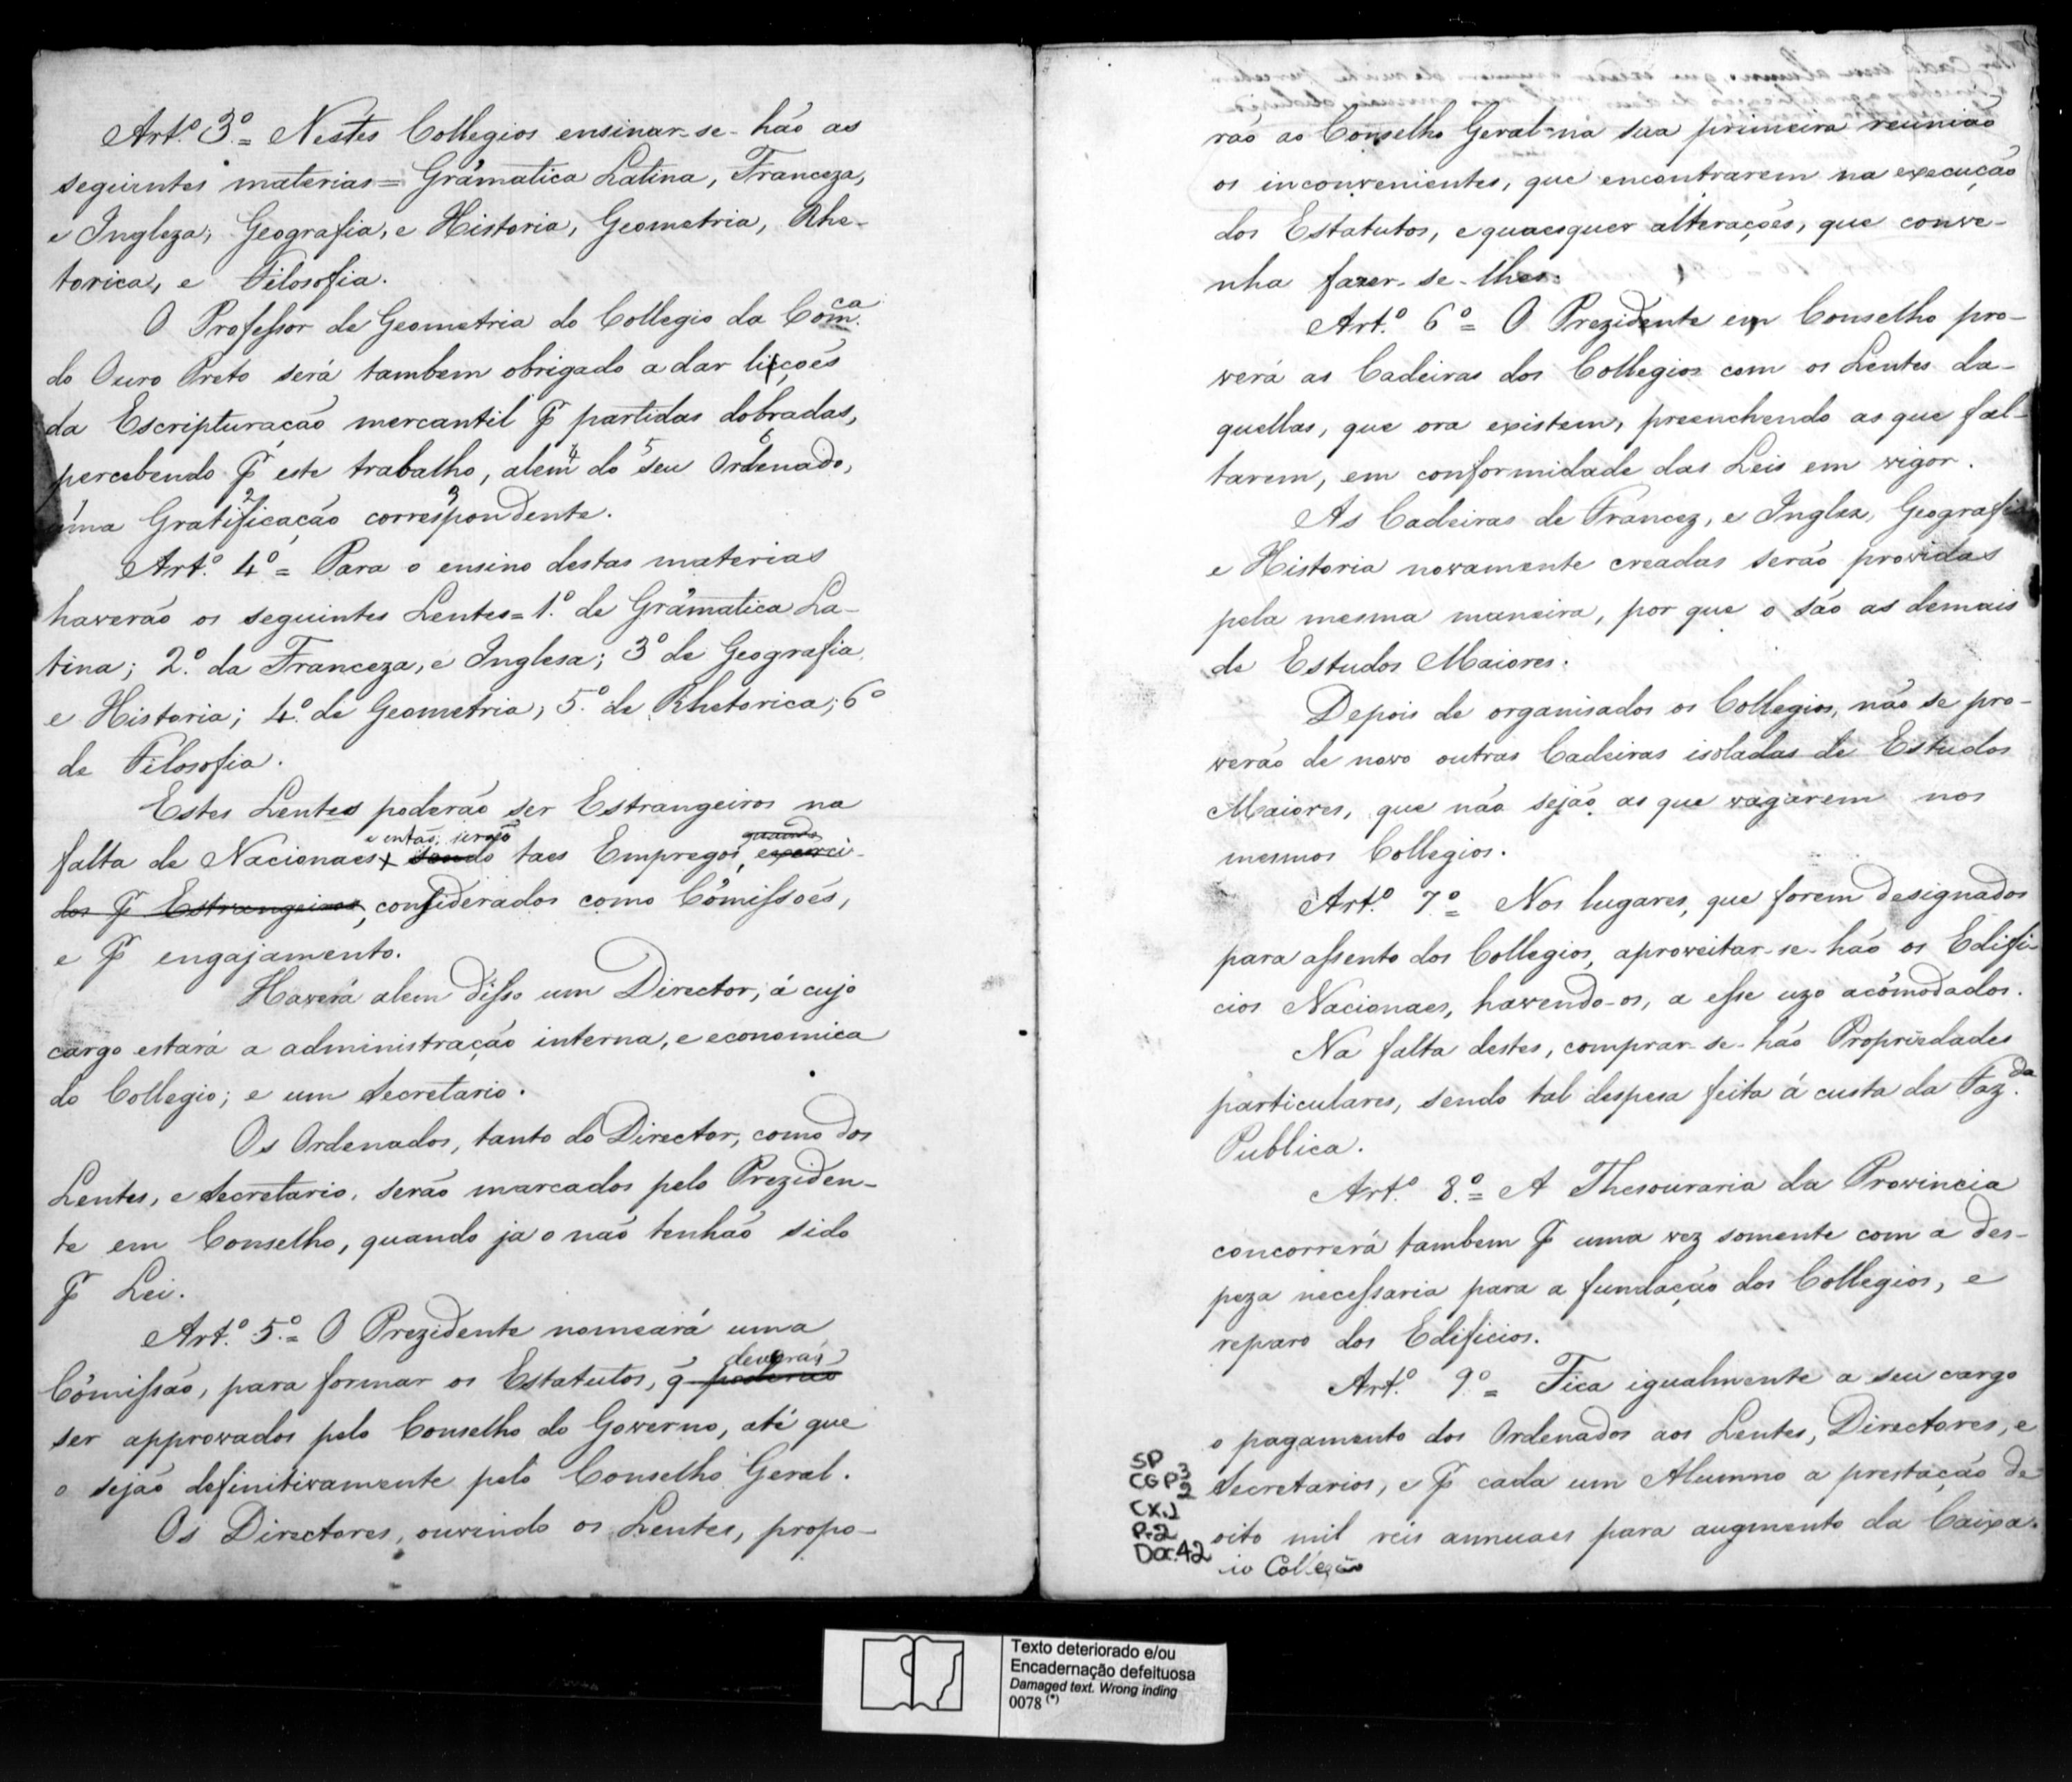 Art.º 3.º = Nestes Collegios ensinar-se-hão as
seguintes materias = Grammatica Latina, Franceza,
e Ingleza, Geografia, e Historia, Geometria, Rhe-
torica, e Filosofia.
O Professor de Geometria do Collegio da Com.ca
do Ouro Preto será tambem obrigado a dar lições
da Escripturação mercantil p partidas dobradas,
percebendo p este trabalho, alem do seu Ordenado,
uma Gratificação correspondente.
Art.º 4.º = Para o ensino destas materias
haverão os seguintes Lentes = 1.º de Grammatica La-
tina; 2.º da Franceza, e Inglesa; 3º de Geografia
e Historia; 4.º de Geometria; 5.º de Rhetorica; 6º
de Filosofia.
Estes Lentes poderão ser Estrangeiros na
e então serão quando
falta de Nacionaes, sendo taes Empregos, exerci-
dos p Estrangeiros, considerados como Cõmissões,
e p engajamento.
Haverá alem disso um Director, á cujo
cargo estará a administração interna, e economica
do Collegio; e um Secretario.
Os Ordenados, tanto do Director, como dos
Lentes, e Secretario, serão marcados pelo Preziden-
te em Conselho, quando ja o não tenhão sido
p Lei.
Art.º 5.º = O Prezidente nomeará uma
deverão
Cõmissão, para formar os Estatutos, q poderão
ser approvados pelo Conselho do Governo, até que
o sejão definitivamente pelo Conselho Geral.
Os Directores, ouvindo os Lentes, propo-
rão ao Conselho Geral na sua primeira reunião
os inconvenientes, que encontrarem na execução
dos Estatutos, e quaesquer alterações, que conve-
nha fazer-se-lhes.
Art.º 6º = O Prezidente em Conselho pro-
verá as Cadeiras dos Collegios com os Lentes da-
quellas, que ora existem, preenchendo as que fal-
tarem, em conformidade das Leis em vigor.
As Cadeiras de Francez, e Inglez, Geografia
e Historia novamente creadas serão providas
pela mesma maneira, por que o são as demais
de Estudos Maiores.
Depois de organisados os Collegios, não se pro-
verão de novo outras Cadeiras isoladas de Estudos
Maiores, que não sejão as que vagarem nos
mesmos Collegios.
Art.º 7º = Nos lugares, que forem designados
para assento dos Collegios, aproveitar-se-hão os Edifi-
cios Nacionaes, havendo-os, a esse uzo acõmodados.
Na falta destes, comprar-se-hão Propriedades
particulares, sendo tal despesa feita á custa da Faz.da
Publica.
Art.º 8.º = A Thesouraria da Provincia
concorrerá tambem p uma vez somente com a des-
peza necessaria para a fundação dos Collegios, e
reparo dos Edificios.
Art.º 9.º = Fica igualmente a seu cargo
o pagamento dos Ordenados aos Lentes, Directores, e
Secretarios, e p cada um Alumno a prestação de
oito mil reis annuaes para augmento da Caixa
SP
CGP3
2
CX.1
P.2
Doc.42
Texto deteriorado e/ou
Encadernação defeituosa
Damaged text. Wrong inding
0078 (*)